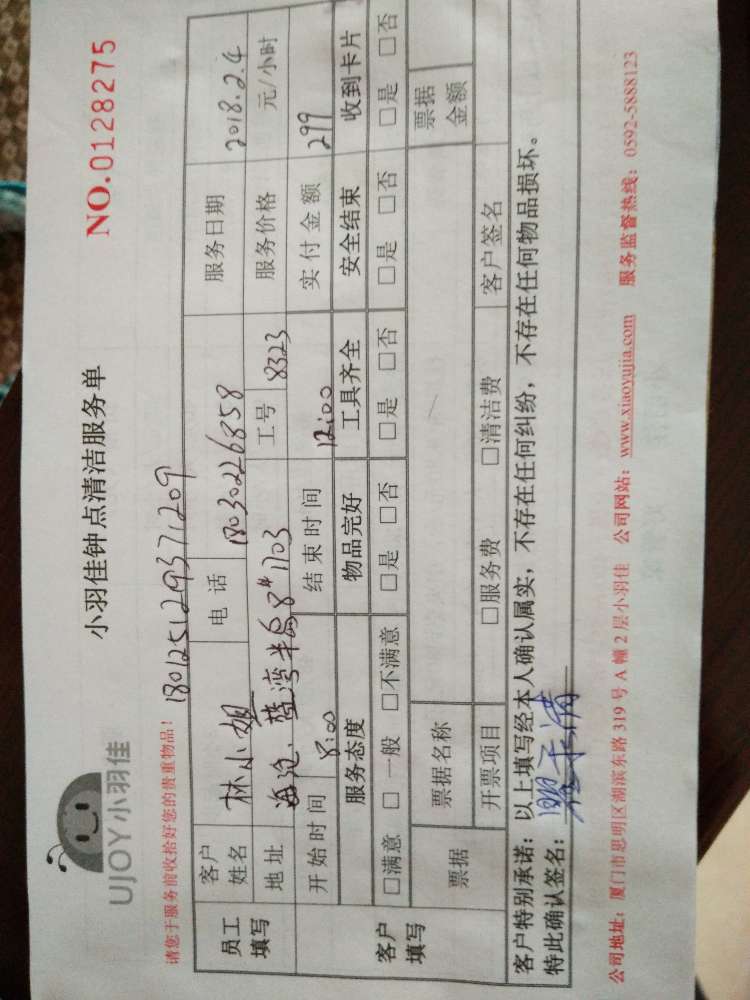 UJOY小羽佳
小羽佳钟点清洁服务单
NO.0128275
请您于服务前收拾好您的贵重物品！
180125129371209
员工填写
客户姓名 林小姐 电话 18030226858 服务日期 2018.2.4
地址 海沧、蓝湾半岛8#1703 工号 8323 服务价格 元/小时
开始时间 8:00 结束时间 12:00 实付金额 299
客户填写
服务态度 物品完好 工具齐全 安全结束 收到卡片
□满意 □一般 □不满意 □是 □否 □是 □否 □是 □否 □是 □否
票据 票据名称 票据金额
开票项目 □服务费 □清洁费 客户签名
客户特别承诺：以上填写经本人确认属实，不存在任何纠纷，不存在任何物品损坏。
特此确认签名：
公司地址：厦门市思明区湖滨东路319号A幢2层小羽佳 公司网站：www.xiaoyujia.com 服务监督热线：0592-5888123